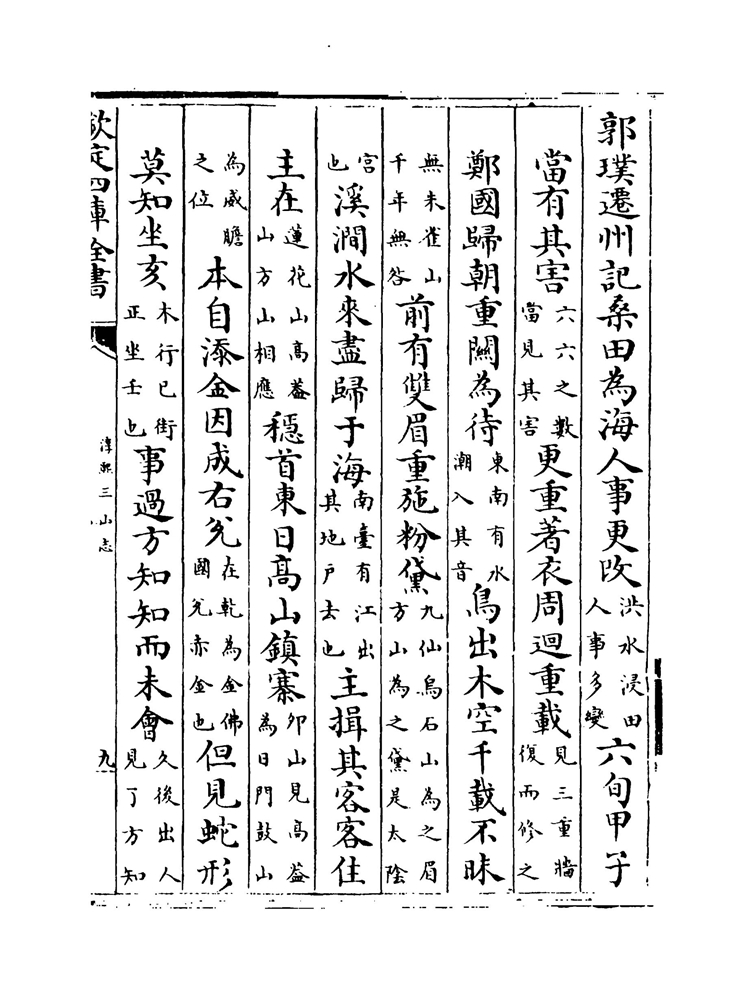 郭璞遷州記桑田為海人事更改洪水浸田人事多變六旬甲子
當有其害六六之數當見其害更重著衣周迴重載見三重牆復而修之
鄭國歸朝重關為待東南有水潮入其音鳥出木空千載不昧
無朱雀山千年無咎前有雙眉重施粉黛九仙烏石山為之眉方山為之黛是太陰
宮也溪澗水來盡歸于海南臺有江出其地戶去也主揖其客客住
主在蓮花山高葢山方山相應穩首東日高山鎮寨卯山見高葢為日門鼓山
為威瞻之位本自添金因成右兊在乾為金佛國兊赤金也但見蛇形
莫知坐亥木行巳街正坐壬也事過方知知而未會久後出人見了方知
欽定四庫全書
淳熙三山志
九